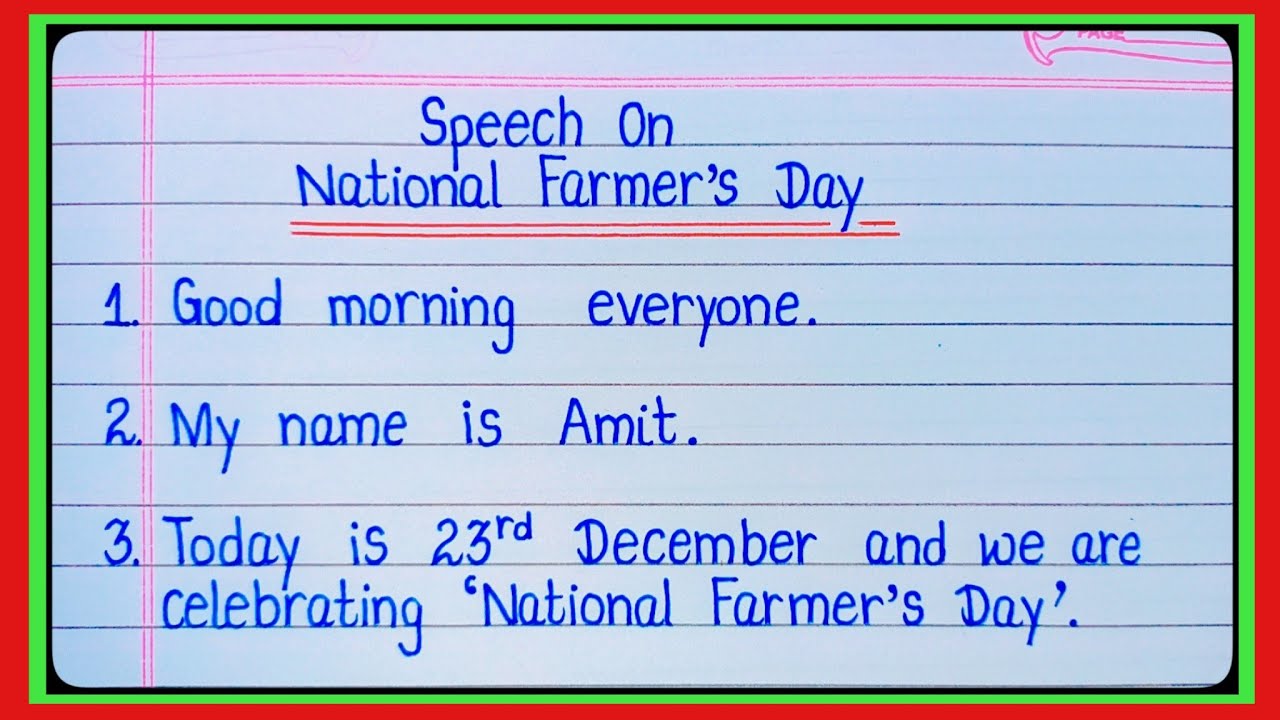 PAGE
Speech On
National Farmer's Day
1. Good morning everyone.
2. My name is Amit.
3. Today is 23rd December and we are
celebrating ‘National Farmer's Day’.